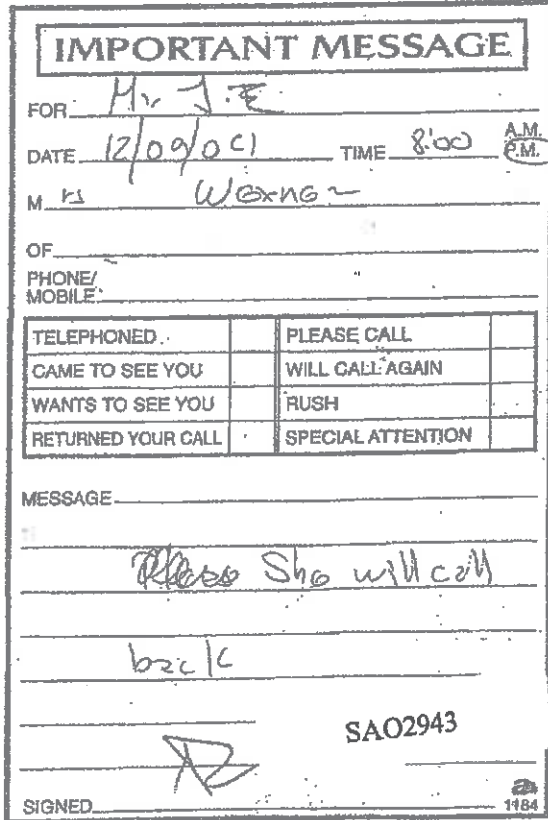 IMPORTANT MESSAGE
FOR Mr J.E
DATE 12/09/04 TIME 8:00 A.M. P.M.
M rs
OF
PHONE/
MOBILE
TELEPHONED PLEASE CALL
CAME TO SEE YOU WILL CALL AGAIN
WANTS TO SEE YOU RUSH
RETURNED YOUR CALL SPECIAL ATTENTION
MESSAGE
Please She will call
back
SAO2943
SIGNED
1184